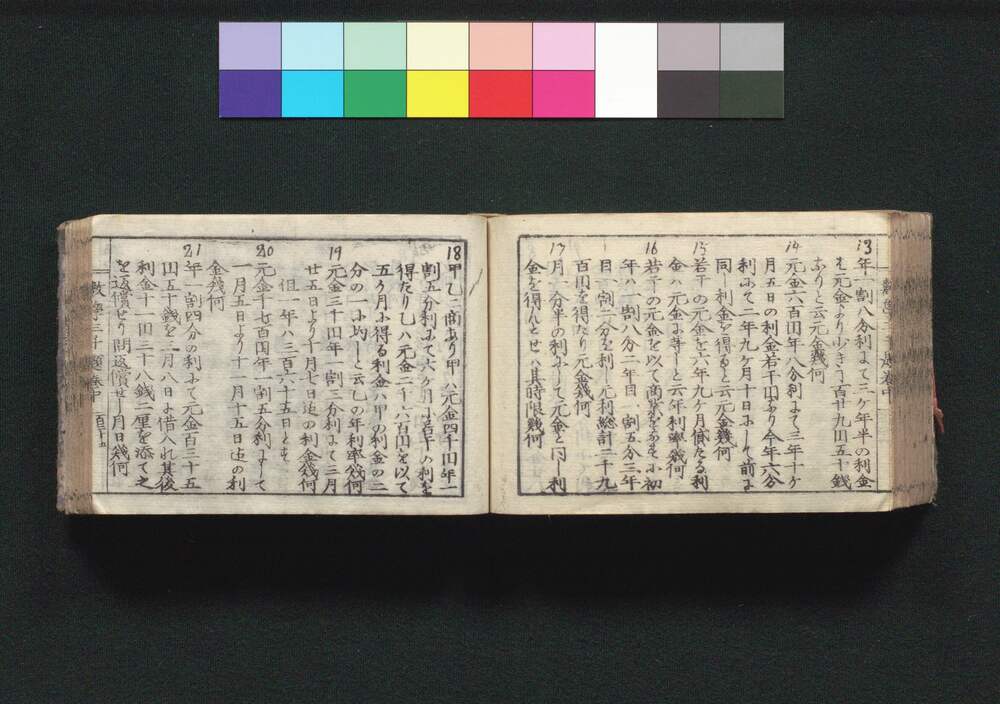 13
年一割八分利にて三ヶ年半の利金
は元金より少きこと百廿九円五十銭
なりと云元金幾何
14
元金六百円年八分利にて三年十ヶ
月五日の利金若干円あり今年六分
利にて二年九ヶ月十日にして前に
同じ利金を得ると云元金幾何
15
若干の元金を六年九ヶ月債たる利
金ハ元金に等しと云年利率幾何
16
若干の元金を以て商業をなすに初
年ハ一割八分二年目一割五分三年
目一割二分を利し元利総計二千九
百円を得たり元金幾何
17
月一分半の利にして元金と同し利
金を得んとせハ其時限幾何
18
甲乙二商あり甲ハ元金四千円年一
割五分利にて六ヶ月に若干の利を
得たり乙ハ元金二千六百円を以て
五ヶ月に得る利金ハ甲の利金の二
分の一に均しと云乙の年利率幾何
19
元金三千円年一割三分利にて三月
廿五日より十月七日迄の利金幾何
但一年ハ三百六十五日とす
20
元金千七百円年一割五分利にして
一月五日より十一月十五日迄の利
金幾何
21
年一割四分の利にて元金百三十五
円五十銭を二月八日に借入れ其後
利金十一円三十八銭二厘を添て之
を返償せり問返償せし月日幾何